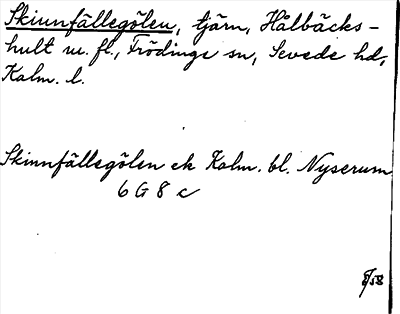 Skinnfällegölen, tjärn, Hålbäcks-
hult m. fl., Frödinge sn, Sevede hd,
Kalm. l.
Skinnfällegölen ek Kalm. bl. Nyserum
6 G 8 c